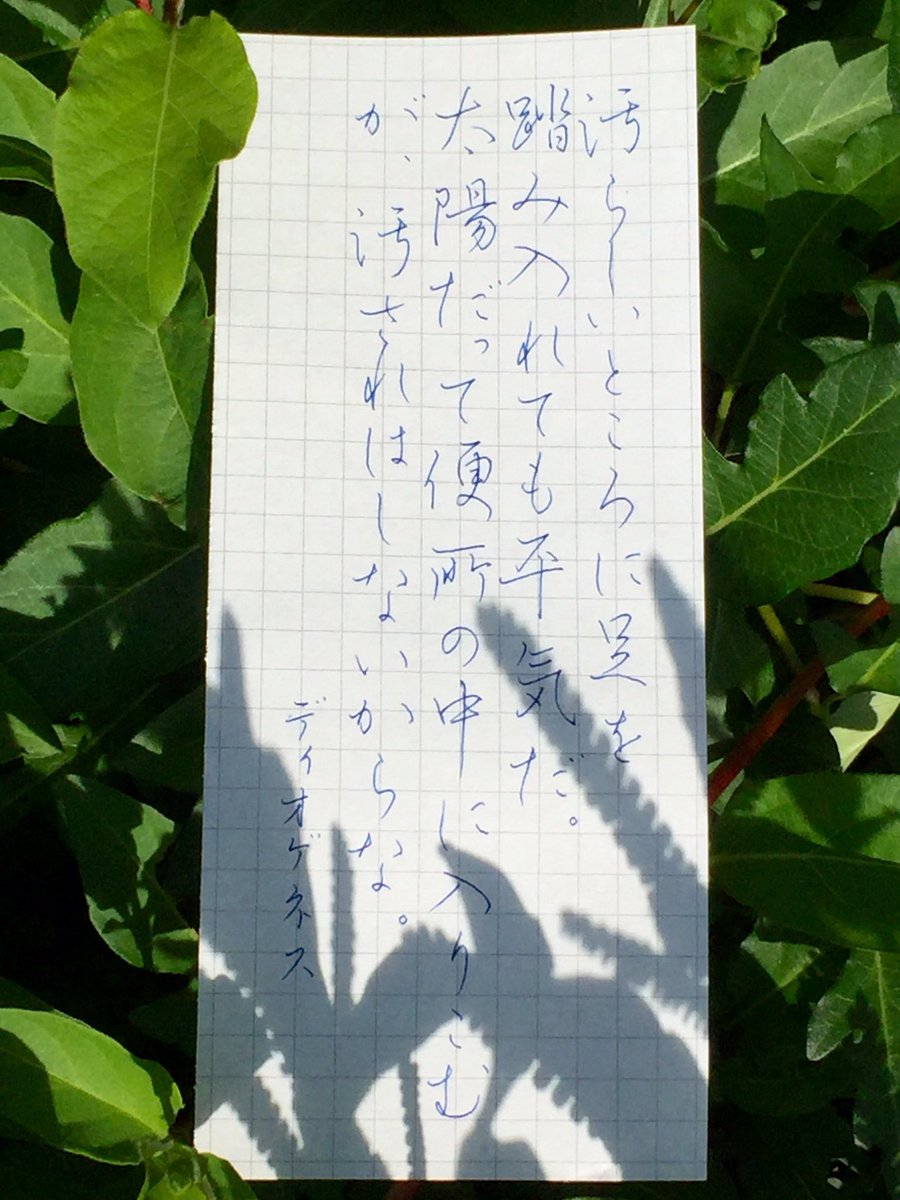 汚らしいところに足を
踏み入れても平気だ。
太陽だって便所の中に入りこむ
が、汚されはしないからな。
ディオゲネス